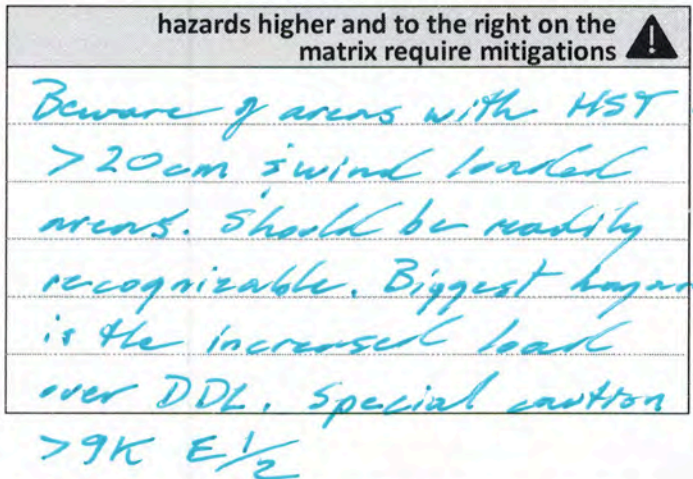 hazards higher and to the right on the
matrix require mitigations
Beware of areas with HST
>20cm & wind loaded
areas. Should be readily
recognizable. Biggest hazar
is the increased load
over DDL. Special caution
>9K E 1/2